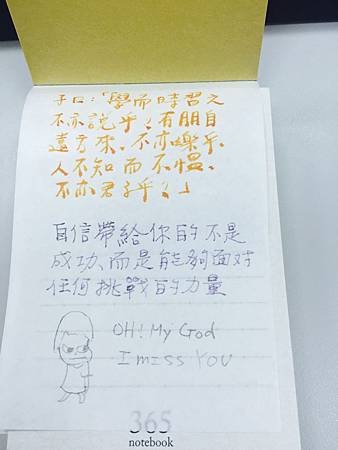 子曰：「學而時習之
不亦說乎？有朋自
遠方來、不亦樂乎、
人不知而不慍、
不亦君子乎？」
自信帶給你的不是
成功、而是能夠面对
任何挑戰的力量
OH! My God
I miss YOU
365
notebook